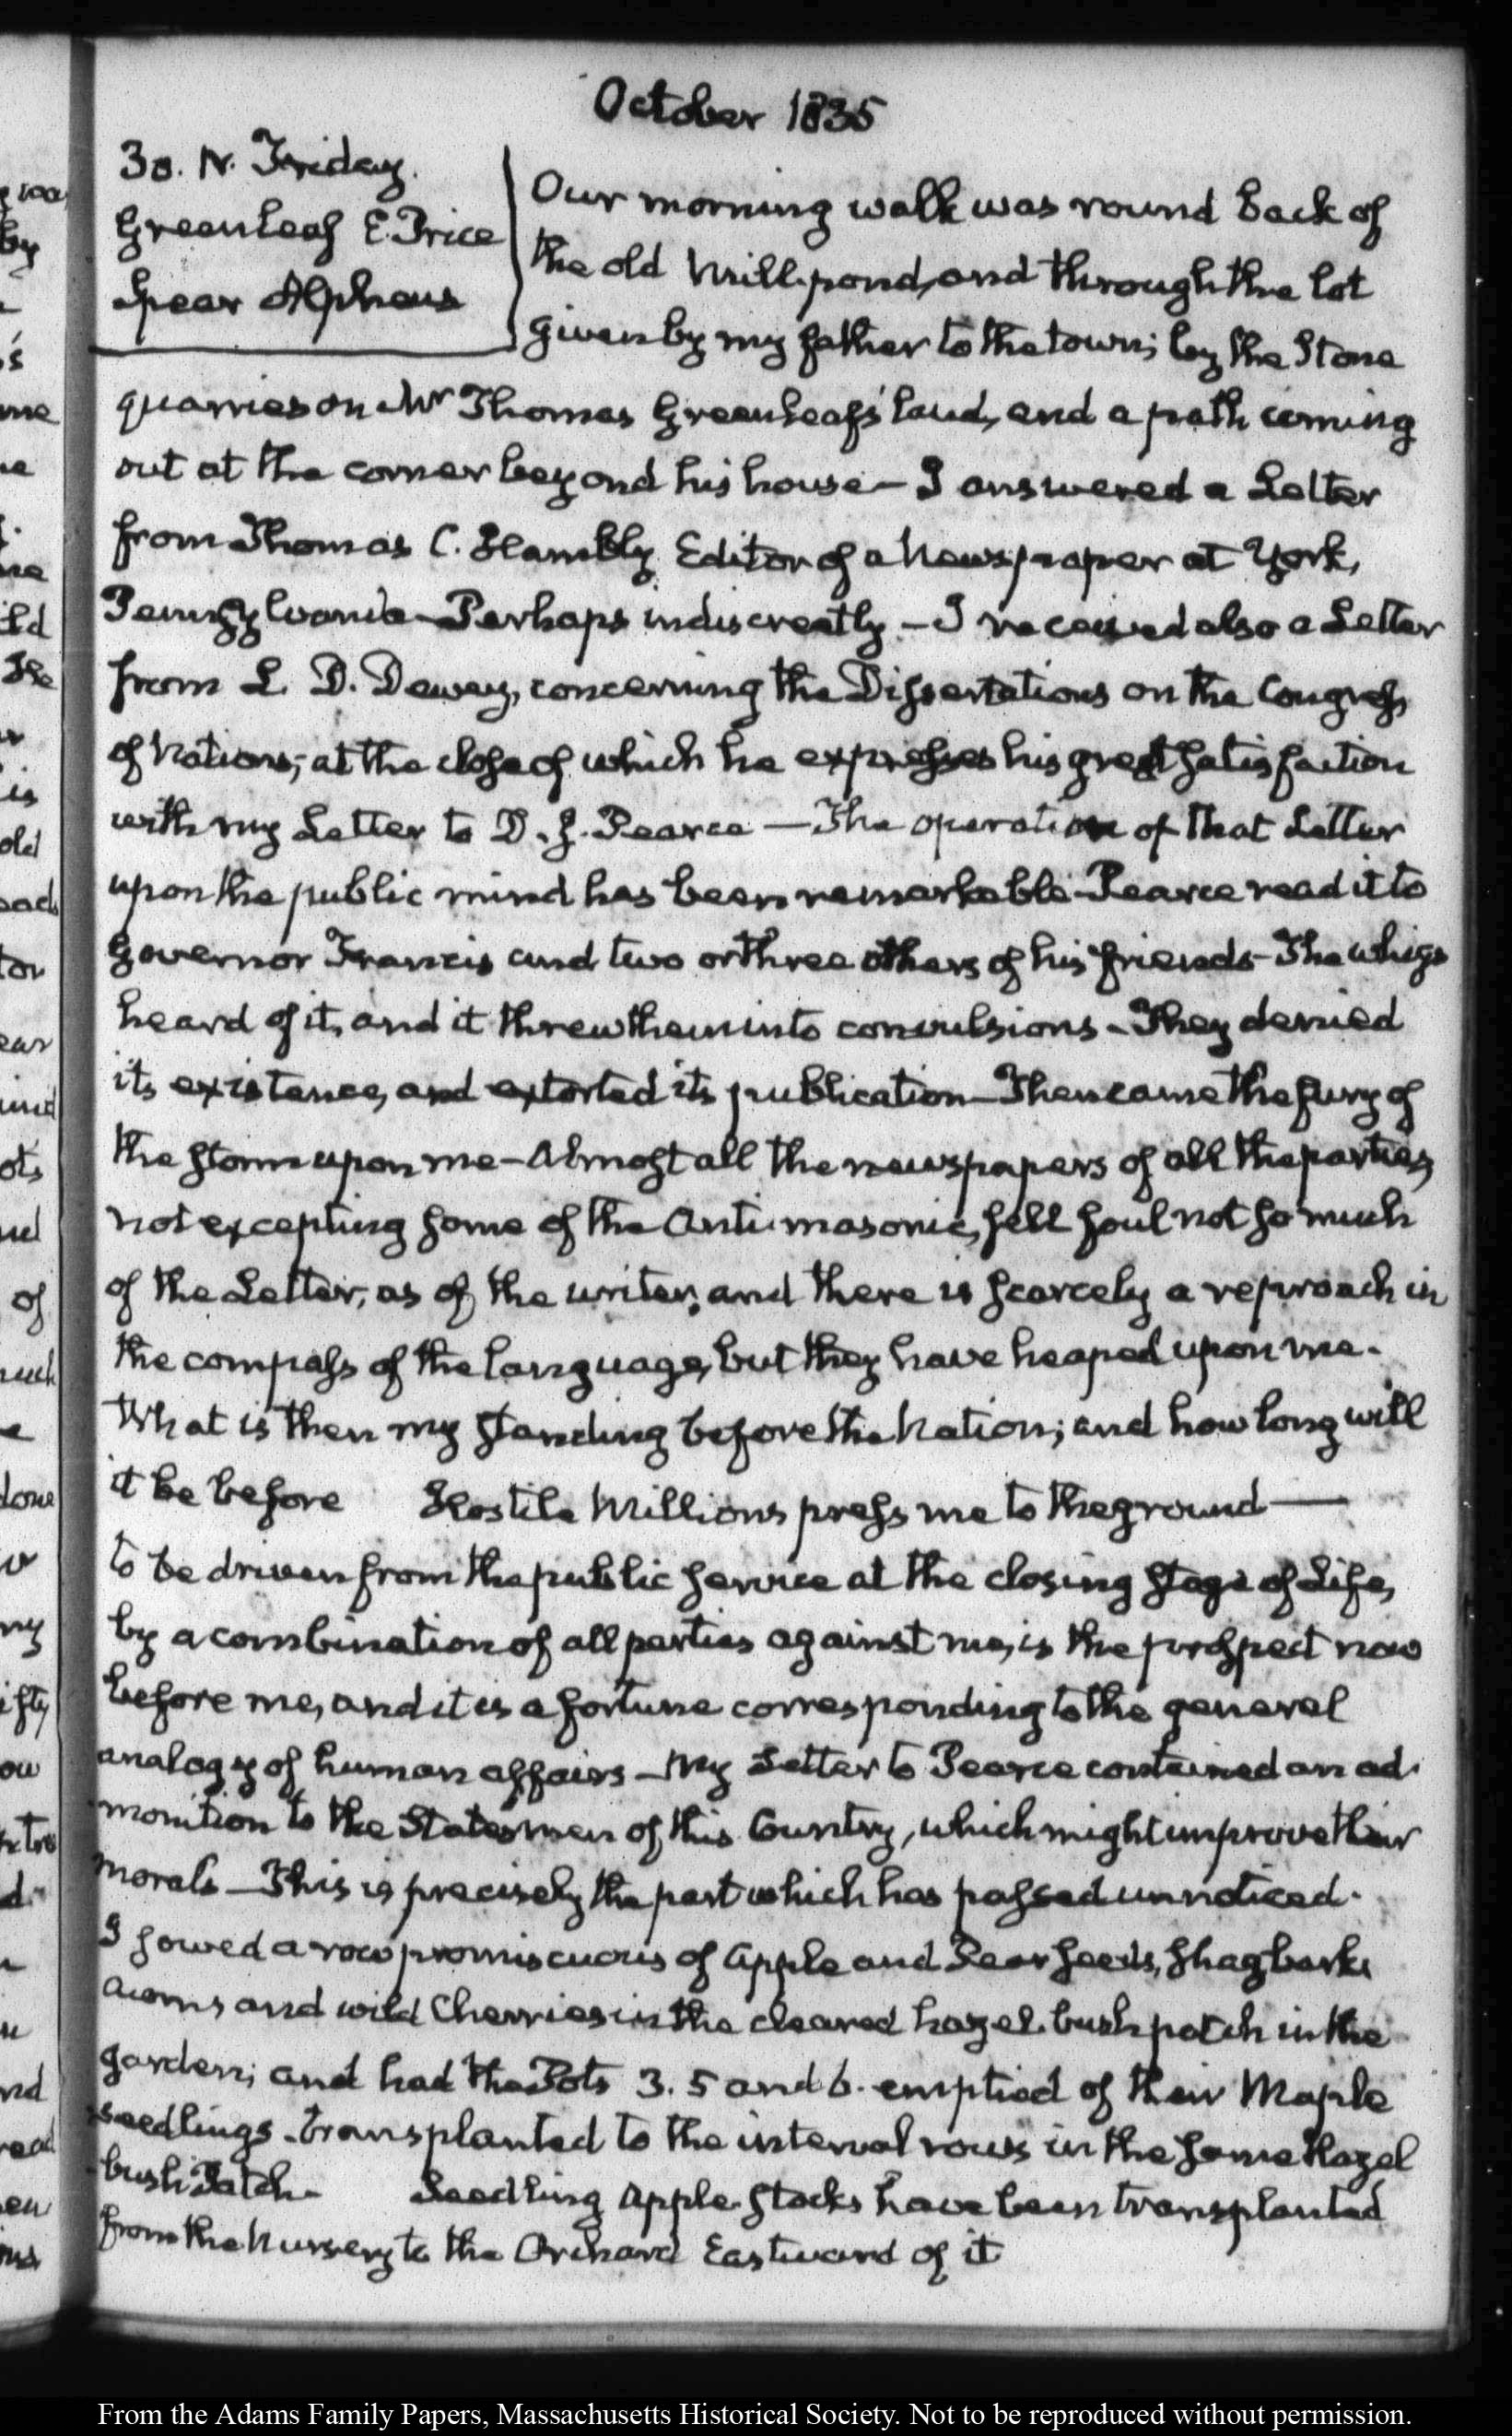 October 1835
30. IV. Friday.
Greenleaf E. Price
Spear Alpheus
Our morning walk was round back of
the old Mill-pond, and through the lot
given by my father to the town; by the Stone
quarries on Mr Thomas Greenleaf's land, and a path coming
out at the corner beyond his house — I answered a Letter
from Thomas C. Hambly Editor of a Newspaper at York,
Pennsylvania — Perhaps indiscreetly — I received also a Letter
from L. D. Dewey, concerning the Dissertations on the Congress
of Nations; at the close of which he expresses his great satisfaction
with my Letter to D. J. Pearce — The operation of that Letter
upon the public mind has been remarkable — Pearce read it to
Governor Francis and two or three others of his friends — The whigs
heard of it, and it threw them into convulsions — They denied
its existence, and extorted its publication — Then came the fury of
the storm upon me — Almost all the newspapers of all the parties,
not excepting some of the Antimasonic, fell foul not so much
of the Letter, as of the writer, and there is scarcely a reproach in
the compass of the language, but they have heaped upon me.
What is then my standing before the Nation; and how long will
it be before Hostile Millions press me to the ground —
to be driven from the public service at the closing stage of Life,
by a combination of all parties against me, is the prospect now
before me, and it is a fortune corresponding to the general
analogy of human affairs — My Letter to Pearce contained an ad-
monition to the Statesmen of this Country, which might improve their
morals — This is precisely the part which has passed unnoticed.
I sowed a row promiscuous of Apple and Pear seeds, shagbarks
acorns and wild Cherries in the cleared hazel-bush patch in the
garden; and had the Pots 3. 5 and 6. emptied of their Maple
seedlings — transplanted to the interval rows in the same Hazel
bush Patch. Seedling Apple-stocks have been transplanted
from the Nursery to the Orchard Eastward of it
From the Adams Family Papers, Massachusetts Historical Society. Not to be reproduced without permission.